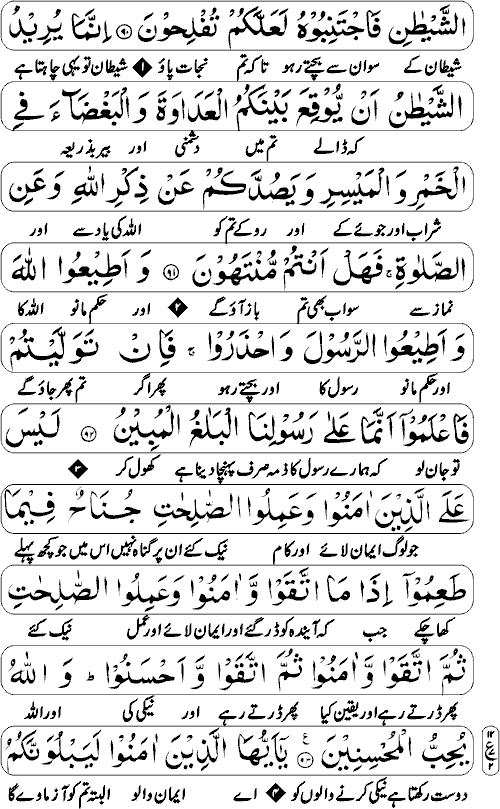 الشَّيْطٰنِ فَاجْتَنِبُوْهُ لَعَلَّكُمْ تُفْلِحُوْنَ ۝۹۰ اِنَّمَا يُرِيْدُ
شیطان کے سو ان سے بچتے رہو تاکہ تم نجات پاؤ ۱ شیطان تو یہی چاہتا ہے
الشَّيْطٰنُ اَنْ يُّوْقِعَ بَيْنَكُمُ الْعَدَاوَةَ وَالْبَغْضَآءَ فِي
کہ ڈالے تم میں دشمنی اور بیر بذریعہ
الْخَمْرِ وَالْمَيْسِرِ وَيَصُدَّكُمْ عَنْ ذِكْرِ اللّٰهِ وَعَنِ
شراب اور جوئے کے اور روکے تم کو اللہ کی یاد سے اور
الصَّلٰوةِ ۚ فَهَلْ اَنْتُمْ مُّنْتَهُوْنَ ۝۹۱ وَاَطِيْعُوا اللّٰهَ
نماز سے سو اب بھی تم باز آؤ گے ۲ اور حکم مانو اللہ کا
وَاَطِيْعُوا الرَّسُوْلَ وَاحْذَرُوْا ۚ فَاِنْ تَوَلَّيْتُمْ
اور حکم مانو رسول کا اور بچتے رہو پھر اگر تم پھر جاؤ گے
فَاعْلَمُوْٓا اَنَّمَا عَلٰى رَسُوْلِنَا الْبَلٰغُ الْمُبِيْنُ ۝۹۲ لَيْسَ
تو جان لو کہ ہمارے رسول کا ذمہ صرف پہنچا دینا ہے کھول کر ۳
عَلَى الَّذِيْنَ اٰمَنُوْا وَعَمِلُوا الصّٰلِحٰتِ جُنَاحٌ فِيْمَا
جو لوگ ایمان لائے اور کام نیک کئے ان پر گناہ نہیں اس میں جو کچھ پہلے
طَعِمُوْٓا اِذَا مَا اتَّقَوْا وَّاٰمَنُوْا وَعَمِلُوا الصّٰلِحٰتِ
کھا چکے جب کہ آیندہ کو ڈر گئے اور ایمان لائے اور عمل نیک کئے
ثُمَّ اتَّقَوْا وَّاٰمَنُوْا ثُمَّ اتَّقَوْا وَّاَحْسَنُوْا ؕ وَاللّٰهُ
پھر ڈرتے رہے اور یقین کیا پھر ڈرتے رہے اور نیکی کی اور اللہ
يُحِبُّ الْمُحْسِنِيْنَ ۝۹۳ يٰٓاَيُّهَا الَّذِيْنَ اٰمَنُوْا لَيَبْلُوَنَّكُمُ
دوست رکھتا ہے نیکی کرنے والوں کو ۴ اے ایمان والو البتہ تم کو آزماوے گا